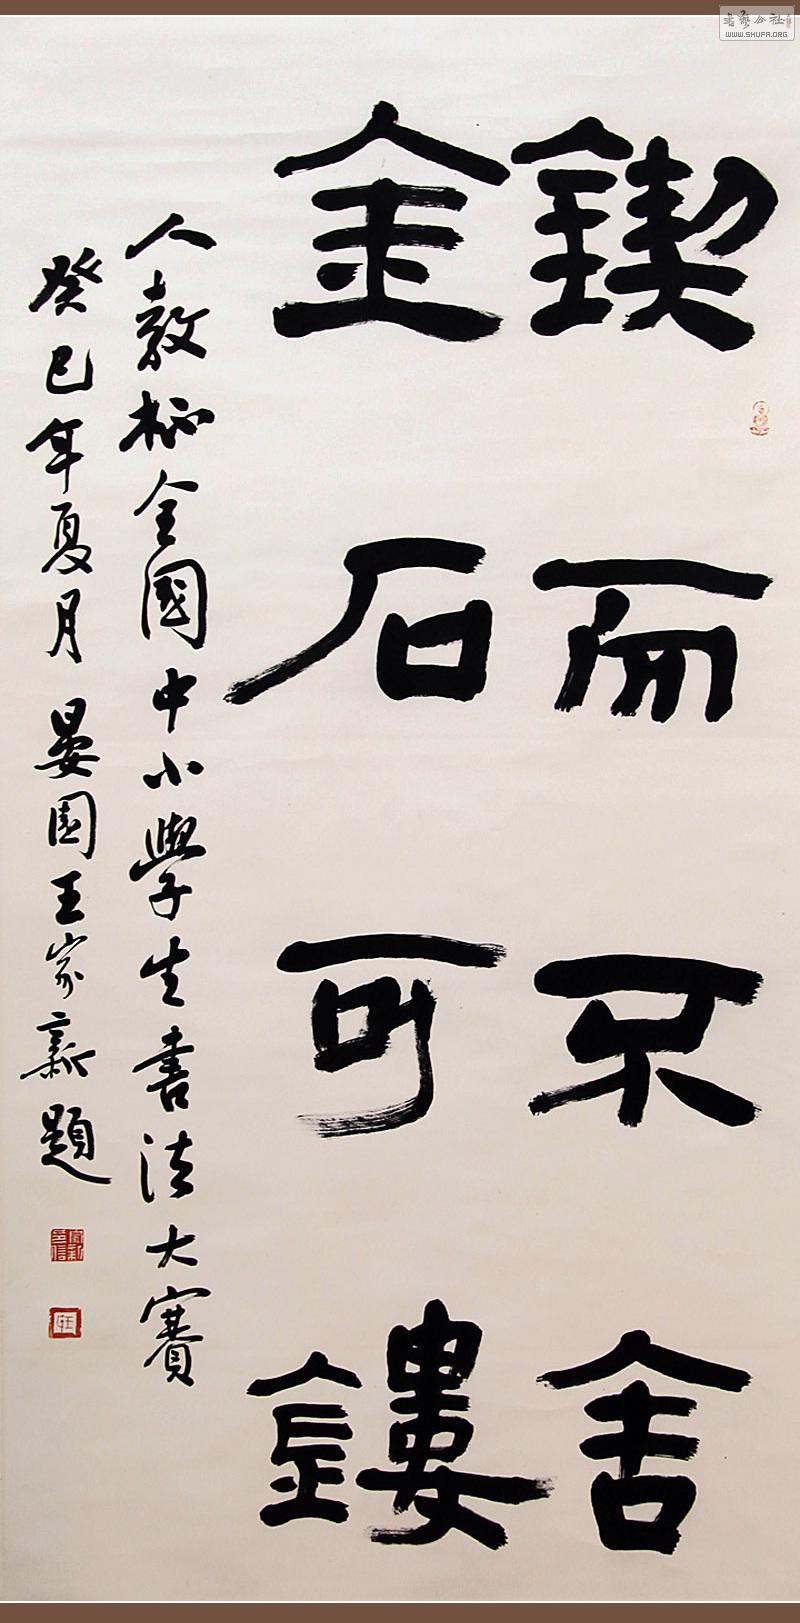 鍥而不舍
金石可鏤
人教杯全國中小學生書法大賽
癸巳年夏月 晏園王家新題
書藝公社
WWW.SHUFA.ORG